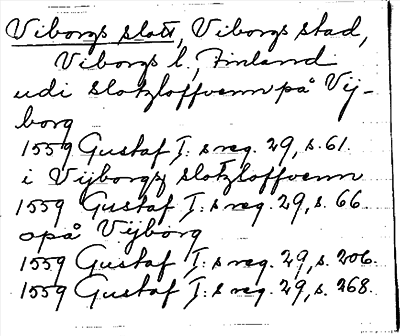 Viborgs slott, Viborgs stad,
Viborgs l., Finland
udi slotzloffvenn på Vij-
borg
1559 Gustaf I:s reg. 29, s. 61.
i Vijborgz slotzloffvenn
1559 Gustaf I:s reg. 29, s. 66.
opå Vijborg
1559 Gustaf I:s reg. 29, s. 206.
1559 Gustaf I:s reg. 29, s. 268.